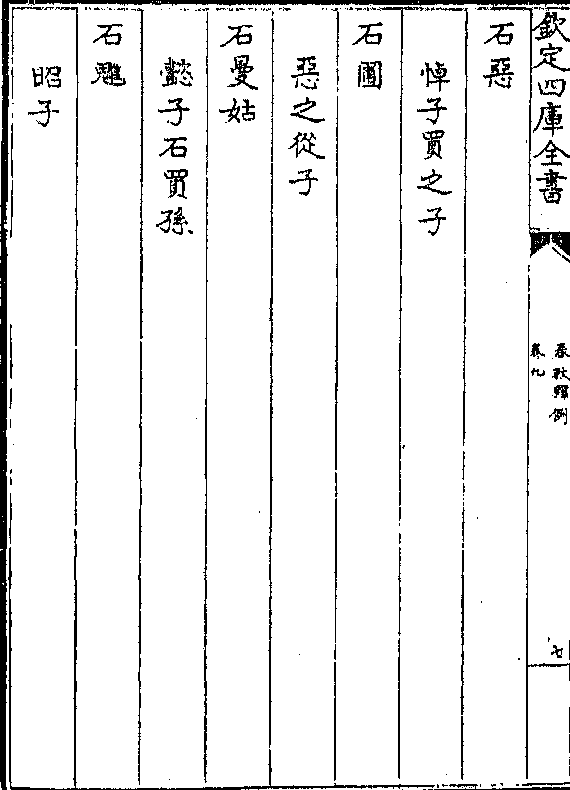 欽定四庫全書
春秋釋例
卷九
七
石惡
悼子買之子
石圃
惡之從子
石曼姑
懿子石買孫
石魋
昭子